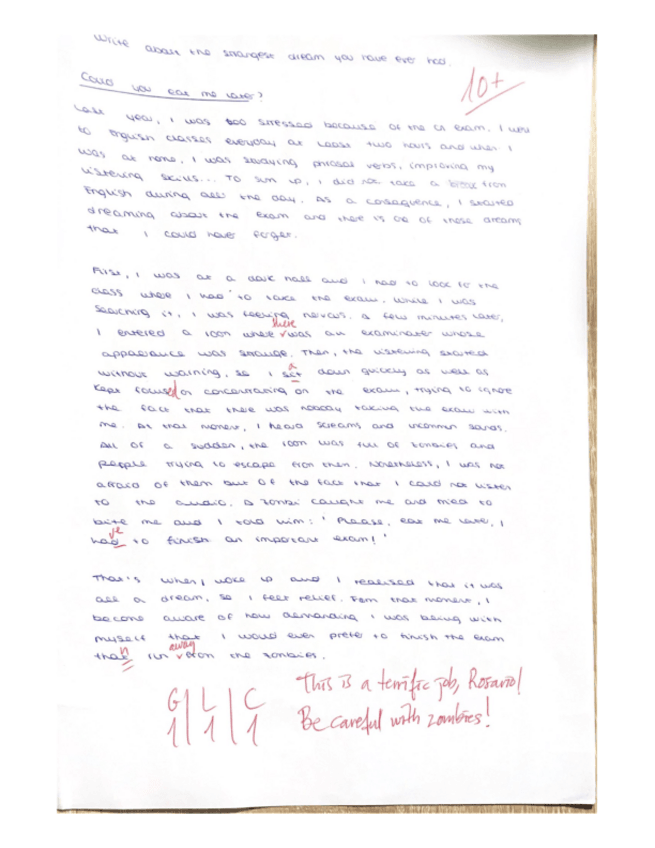 Write about the strangest dream you have ever had.
10+
Could you eat me later?
Last year, I was too stressed because of the C1 exam. I went
to English classes everyday at least two hours and when I
was at home, I was studying phrasal verbs, improving my
listening skills... To sum up, I did not take a break from
English during all the day. As a consequence, I started
dreaming about the exam and there is one of those dreams
that I could never forget.
First, I was at a dark hall and I had to look for the
class where I had to take the exam. While I was
searching it, I was feeling nervous. A few minutes later,
there
I entered a room where was an examinator whose
appearance was strange. Then, the listening started
without warning, so I sit down quickly as well as
a
kept focused on concentrating on the exam, trying to ignore
the fact that there was nobody taking the exam with
me. At that moment, I heard screams and uncommon sounds.
All of a sudden, the room was full of zombies and
people trying to escape from them. Nonetheless, I was not
afraid of them but of the fact that I could not listen
to the audio. A zombi caught me and tried to
bite me and I told him: 'Please, eat me later, I
ve
had to finish an important exam!'
That's when I woke up and I realised that it was
all a dream, so I felt relief. From that moment, I
become aware of how demanding I was being with
myself that I would even prefer to finish the exam
n away
that run from the zombies.
G L C
1 1 1
This is a terrific job, Rosario!
Be careful with zombies!